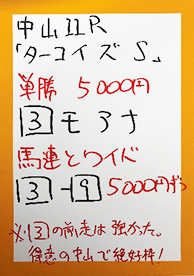 中山11R
「ターコイズS」
単勝 5000円
3 モアナ
馬連とワイド
3-9 5000円ずつ
※3の前走は強かった。
得意の中山で絶好枠!